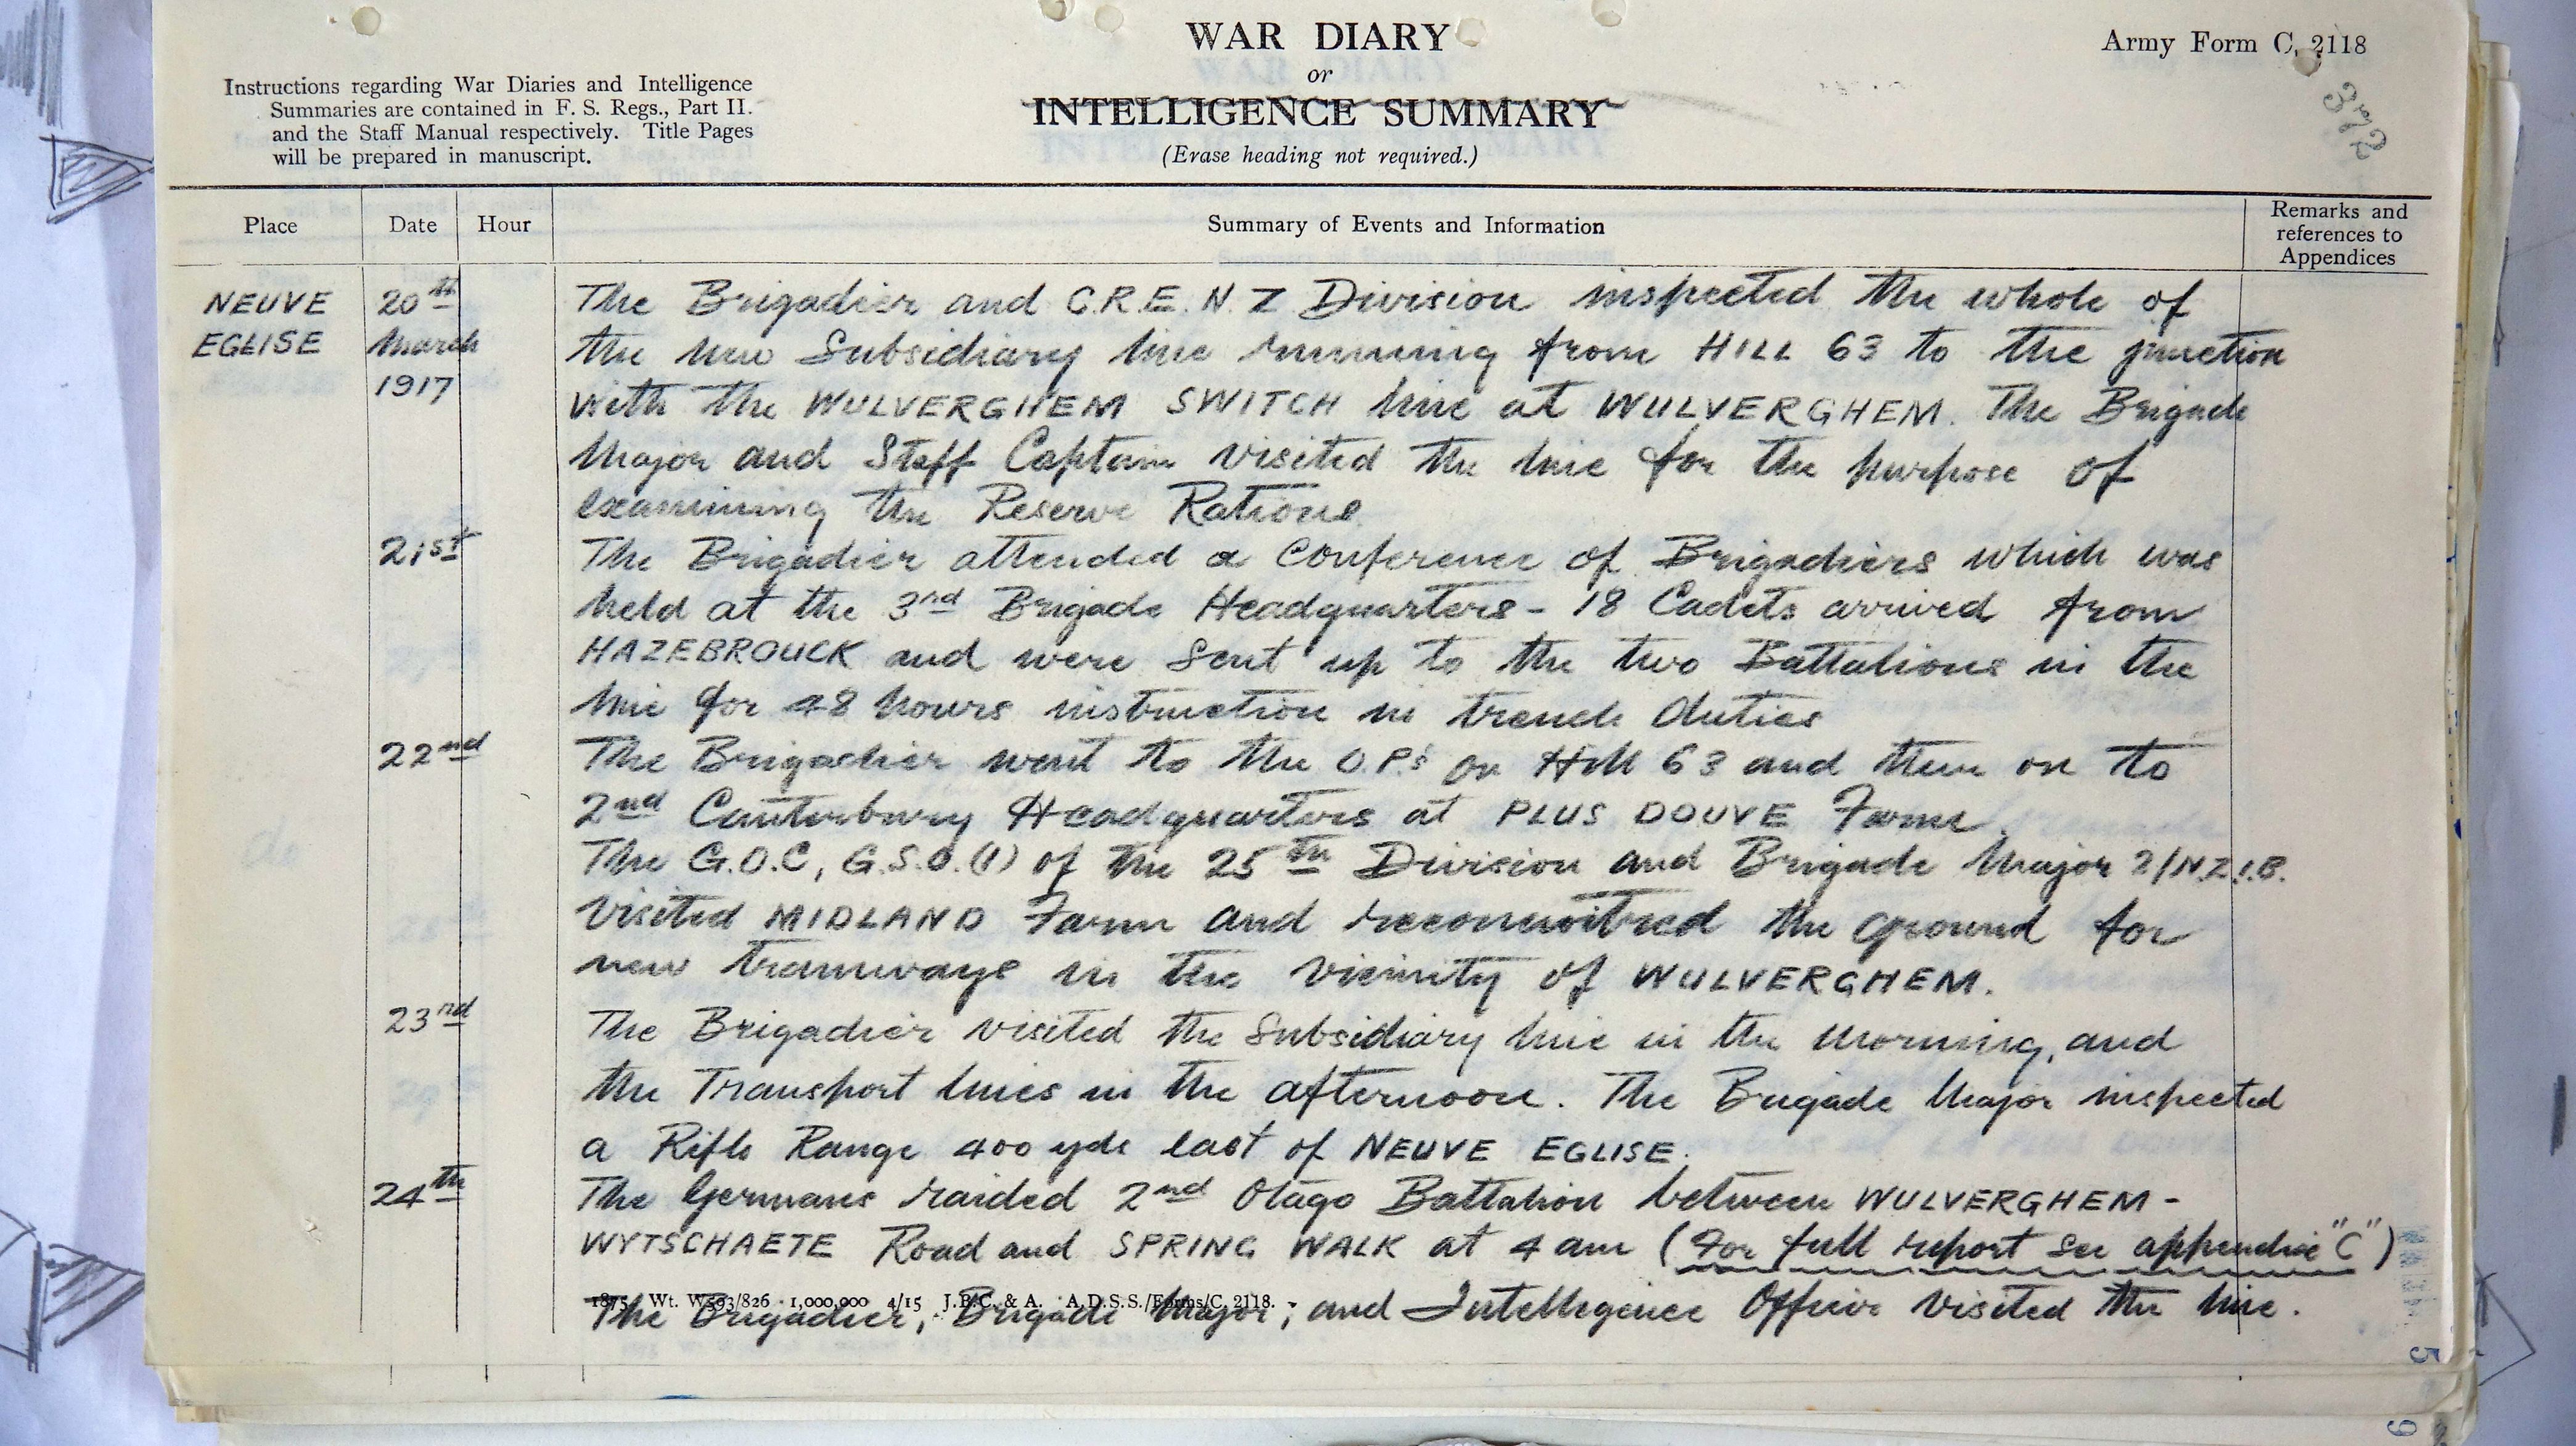 WAR DIARY
or
INTELLIGENCE SUMMARY
(Erase heading not required.)
Army Form C. 2118
372
Instructions regarding War Diaries and Intelligence
Summaries are contained in F. S. Regs., Part II.
and the Staff Manual respectively. Title Pages
will be prepared in manuscript.
Place Date Hour Summary of Events and Information Remarks and
references to
Appendices
NEUVE 20th The Brigadier and C.R.E. N.Z Division inspected the whole of
EGLISE March the new Subsidiary line running from HILL 63 to the junction
1917 with the WULVERGHEM SWITCH line at WULVERGHEM. The Brigade
Major and Staff Captain visited the line for the purpose of
examining the Reserve Rations
21st The Brigadier attended a Conference of Brigadiers which was
held at the 3rd Brigade Headquarters - 18 Cadets arrived from
HAZEBROUCK and were sent up to the two Battalions in the
line for 48 hours instruction in trench duties
22nd The Brigadier went to the O.P.s on Hill 63 and then on to
2nd Canterbury Headquarters at PLUS DOUVE Farm.
The G.O.C, G.S.O.(1) of the 25th Division and Brigade Major 2/N.Z.I.B.
visited MIDLAND Farm and reconnoitred the ground for
new tramways in the vicinity of WULVERGHEM.
23rd The Brigadier visited the Subsidiary line in the morning, and
the Transport lines in the afternoon. The Brigade Major inspected
a Rifle Range 400 yds east of NEUVE EGLISE.
24th The Germans raided 2nd Otago Battalion between WULVERGHEM -
WYTSCHAETE Road and SPRING WALK at 4 am (For full report see appendix "C")
1875 Wt. W593/826 1,000,000 4/15 J.B.C. & A. A.D.S.S./Forms/C. 2118.
The Brigadier, Brigade Major, and Intelligence Officer visited the line.
5
9